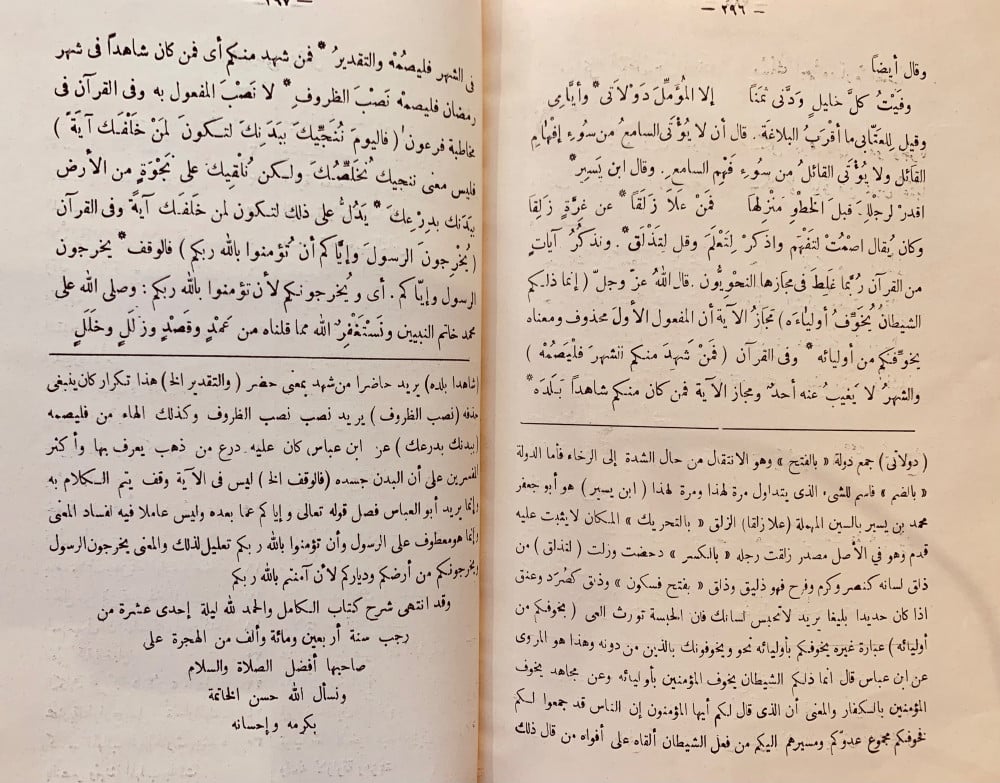 — ٢٩٦ —
وقال أيضاً
وفَيْتُ كلَّ خليلٍ وَدَّنى ثمَنًا إلا المُؤمِّلَ دَوْلاَتى * وأيَّامِى
وقيل للعتَّابى ما أقْرَبُ البلاغةَ . قال أن لا يُؤْتَى السامعُ من سُوءِ إفْهامِ
القائل ولا يُؤْتَى القائلُ من سوءِ فَهْمِ السامعِ . وقال ابن يَسِيرٍ *
اقدرْ لرجلكَ قبلَ الخطْوِ مَنْزلها فَمَنْ علاَ زَلَقاً * عن غرَّةٍ زَلِقَا
وكان يُقال اصْمُتْ لتَفْهَم واذكرْ لِتَعْلَمَ وقل لِتَذْلَق * . ونذكُرُ آياتٍ
من القرآن ربُّما غَلِطَ فى مجازها النحويُّون . قال اللهُ عزّ وجلّ ( إنما ذلكم
الشيطان يُخَوِّفُ أولياءَه ) مَجَازُ الآية أن المفعول الأولَ محذوف ومعناه
يخوِّفكم من أوليائه * وفى القرآن ( فَمَنْ شَهِدَ منكم الشهرَ فلْيَصُمْهُ )
والشهرُ لا يَغيبُ عنه أحدٌ ومجاز الآية فمن كان منكم شاهداً بَلَدَه *
( دولاتى ) جمع دولة « بالفتح » وهو الانتقال من حال الشدة إلى الرخاء فأما الدولة
« بالضم » فاسم للشىء الذى يتداول مرة لهذا ومرة لهذا ( ابن يسير ) هو أبو جعفر
محمد بن يسير بالسين المهملة ( علا زلقا ) الزلق « بالتحريك » المكان لا يثبت عليه
قدم وهو في الأصل مصدر زلقت رجله « بالكسر » دحضت وزلت ( لتذلق ) من
ذلق لسانه كنصر وكرم وفرح فهو ذليق وذلق « بفتح فسكون » وذلق كصُرَد وعنق
اذا كان حديدا بليغا يريد لا تحبس لسانك فان الحبسة تورث العى ( يخوفكم من
أوليائه ) عبارة غيره يخوفكم بأوليائه نحو ويخوفونك بالذين من دونه وهذا هو المروى
عن ابن عباس قال انما ذلكم الشيطان يخوف المؤمنين بأوليائه وعن مجاهد يخوف
المؤمنين بالكفار والمعنى أن الذى قال لكم أيها المؤمنون إن الناس قد جمعوا لكم
فخوفكم مجموع عدوّكم ومسيرهم اليكم من فعل الشيطان ألقاه على أفواه من قال ذلك
فى الشهر فليصُمْهُ والتقديرُ * فمن شهد منكم أى فمن كان شاهداً فى شهر
رمضان فليصمْهُ نَصْبَ الظروفِ * لا نَصْبَ المفعول به وفى القرآن فى
مخاطبة فرعون ( فاليومَ نُنَجِّيكَ ببَدَنِكَ لتكونَ لمَنْ خَلْفَك آيةً )
فليس معنى ننجيك نُخَلِّصُكَ ولكن نُلْقِيكَ على نَجْوَةٍ من الأرض
ببَدَنك بدِرْعِكَ * يَدُلُّ على ذلك لتكون لمن خلفك آيةً وفى القرآن
( يُخْرجونَ الرسولَ وإيَّاكم أن تُؤمنوا بالله ربكم ) فالوقف * يخرجون
الرسول وإيّاكم . أى ويُخرجونكم لأن تؤمنوا بالله ربكم : وصلى الله على
محمد خاتم النبيين ونَسْتَغْفِرُ الله مما قلناه من عَمْدٍ وقَصْدٍ وزَلَلٍ وخَلَلٍ
( شاهدا بلده ) يريد حاضرا من شهد بمعنى حضر ( والتقدير الخ ) هذا تكرار كان ينبغى
حذفه ( نصب الظروف ) يريد نصب نصب الظروف وكذلك الهاء من فليصمه
( ببدنك بدرعك ) عن ابن عباس كان عليه درع من ذهب يعرف بها وأكثر
المفسرين على أن البدن جسده ( فالوقف الخ ) ليس فى الآية وقف يتم الكلام به
وإنما يريد أبو العباس فصل قوله تعالى وإياكم عما بعده وليس عاملا فيه افساد المعنى
وإنما هو معطوف على الرسول وأن تؤمنوا بالله ربكم تعليل لذلك والمعنى يخرجون الرسول
ويخرجونكم من أرضكم ودياركم لأن آمنتم بالله ربكم
وقد انتهى شرح كتاب الكامل والحمد لله ليلة إحدى عشرة من
رجب سنة أربعين ومائة وألف من الهجرة على
صاحبها أفضل الصلاة والسلام
ونسأل الله حسن الخاتمة
بكرمه وإحسانه